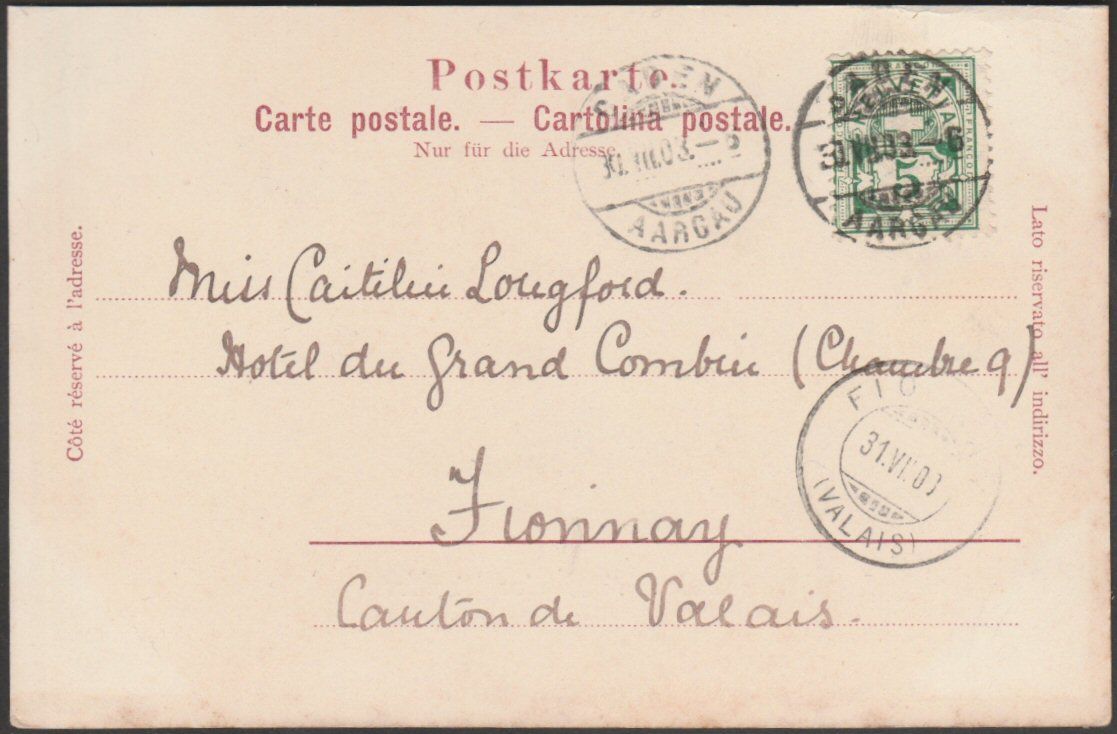 Postkarte.
Carte postale. — Cartolina postale.
Nur für die Adresse.
BADEN
30.VII.03.–6
AARGAU
BADEN
30.VII.03.–6
AARGAU
HELVETIA
FRANCO
5
Côté réservé à l'adresse.
Lato riservato all' indirizzo.
Miss Caitilin Longford.
Hotel du Grand Combin (Chambre 9)
FIO
31.VII.03
(VALAIS)
Fionnay
Canton de Valais.